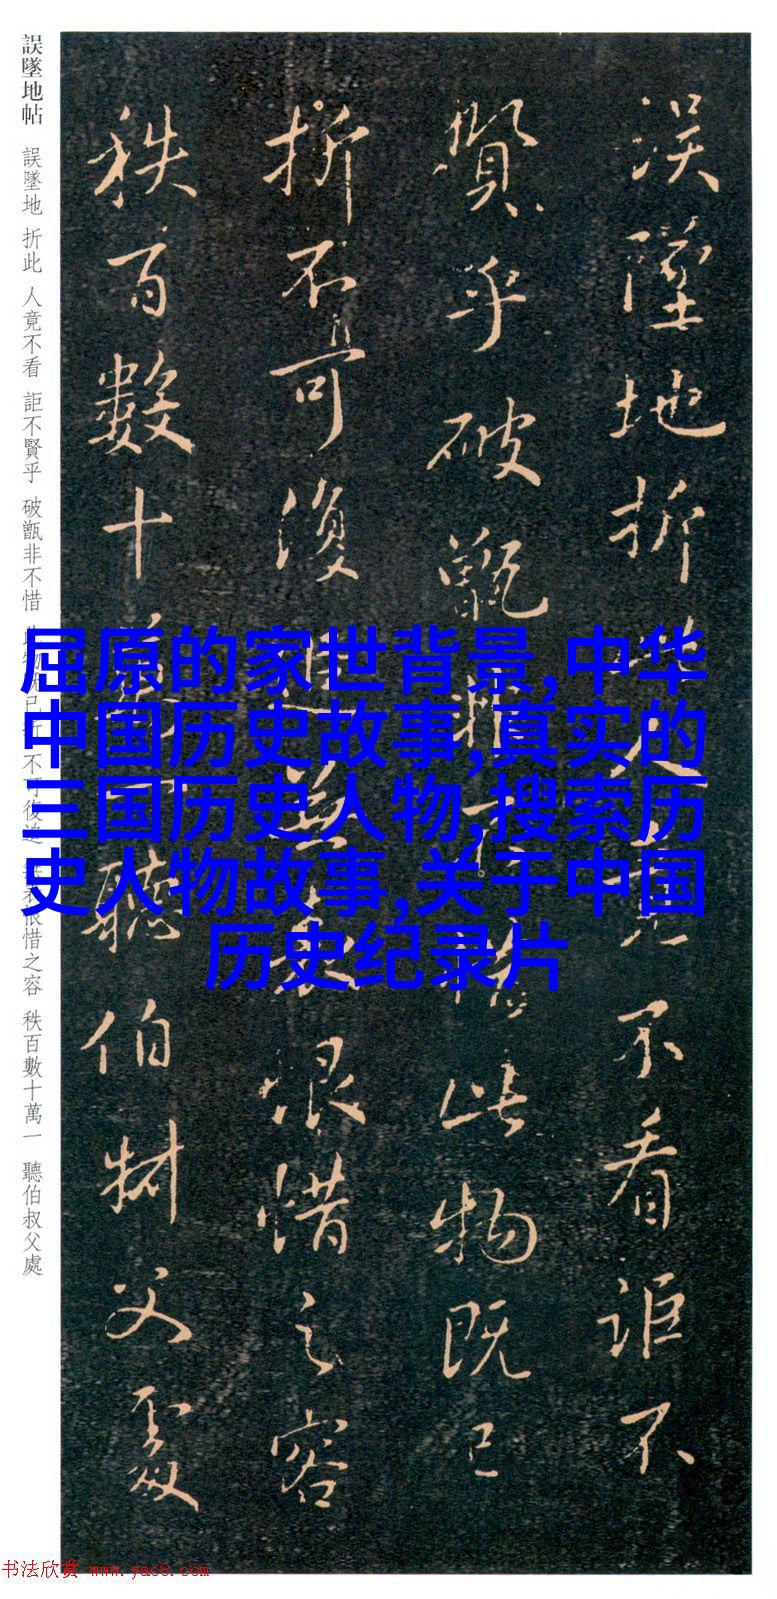 誤墜地折此人竟不看詎不
賢乎破甑非不惜此物既已
折不可復追無表恨惜之容
秩百數十萬一聽伯叔父處
誤墜地帖 誤墜地 折此 人竟不看 詎不賢乎 破甑非不惜 此物既已折 不可復追 無表恨惜之容 秩百數十萬一 聽伯叔父處
屈原的家世背景,中华
中国历史故事,真实的
三国历史人物,搜索历
史人物故事,关于中国
历史纪录片
书法欣赏 www.yac8.com